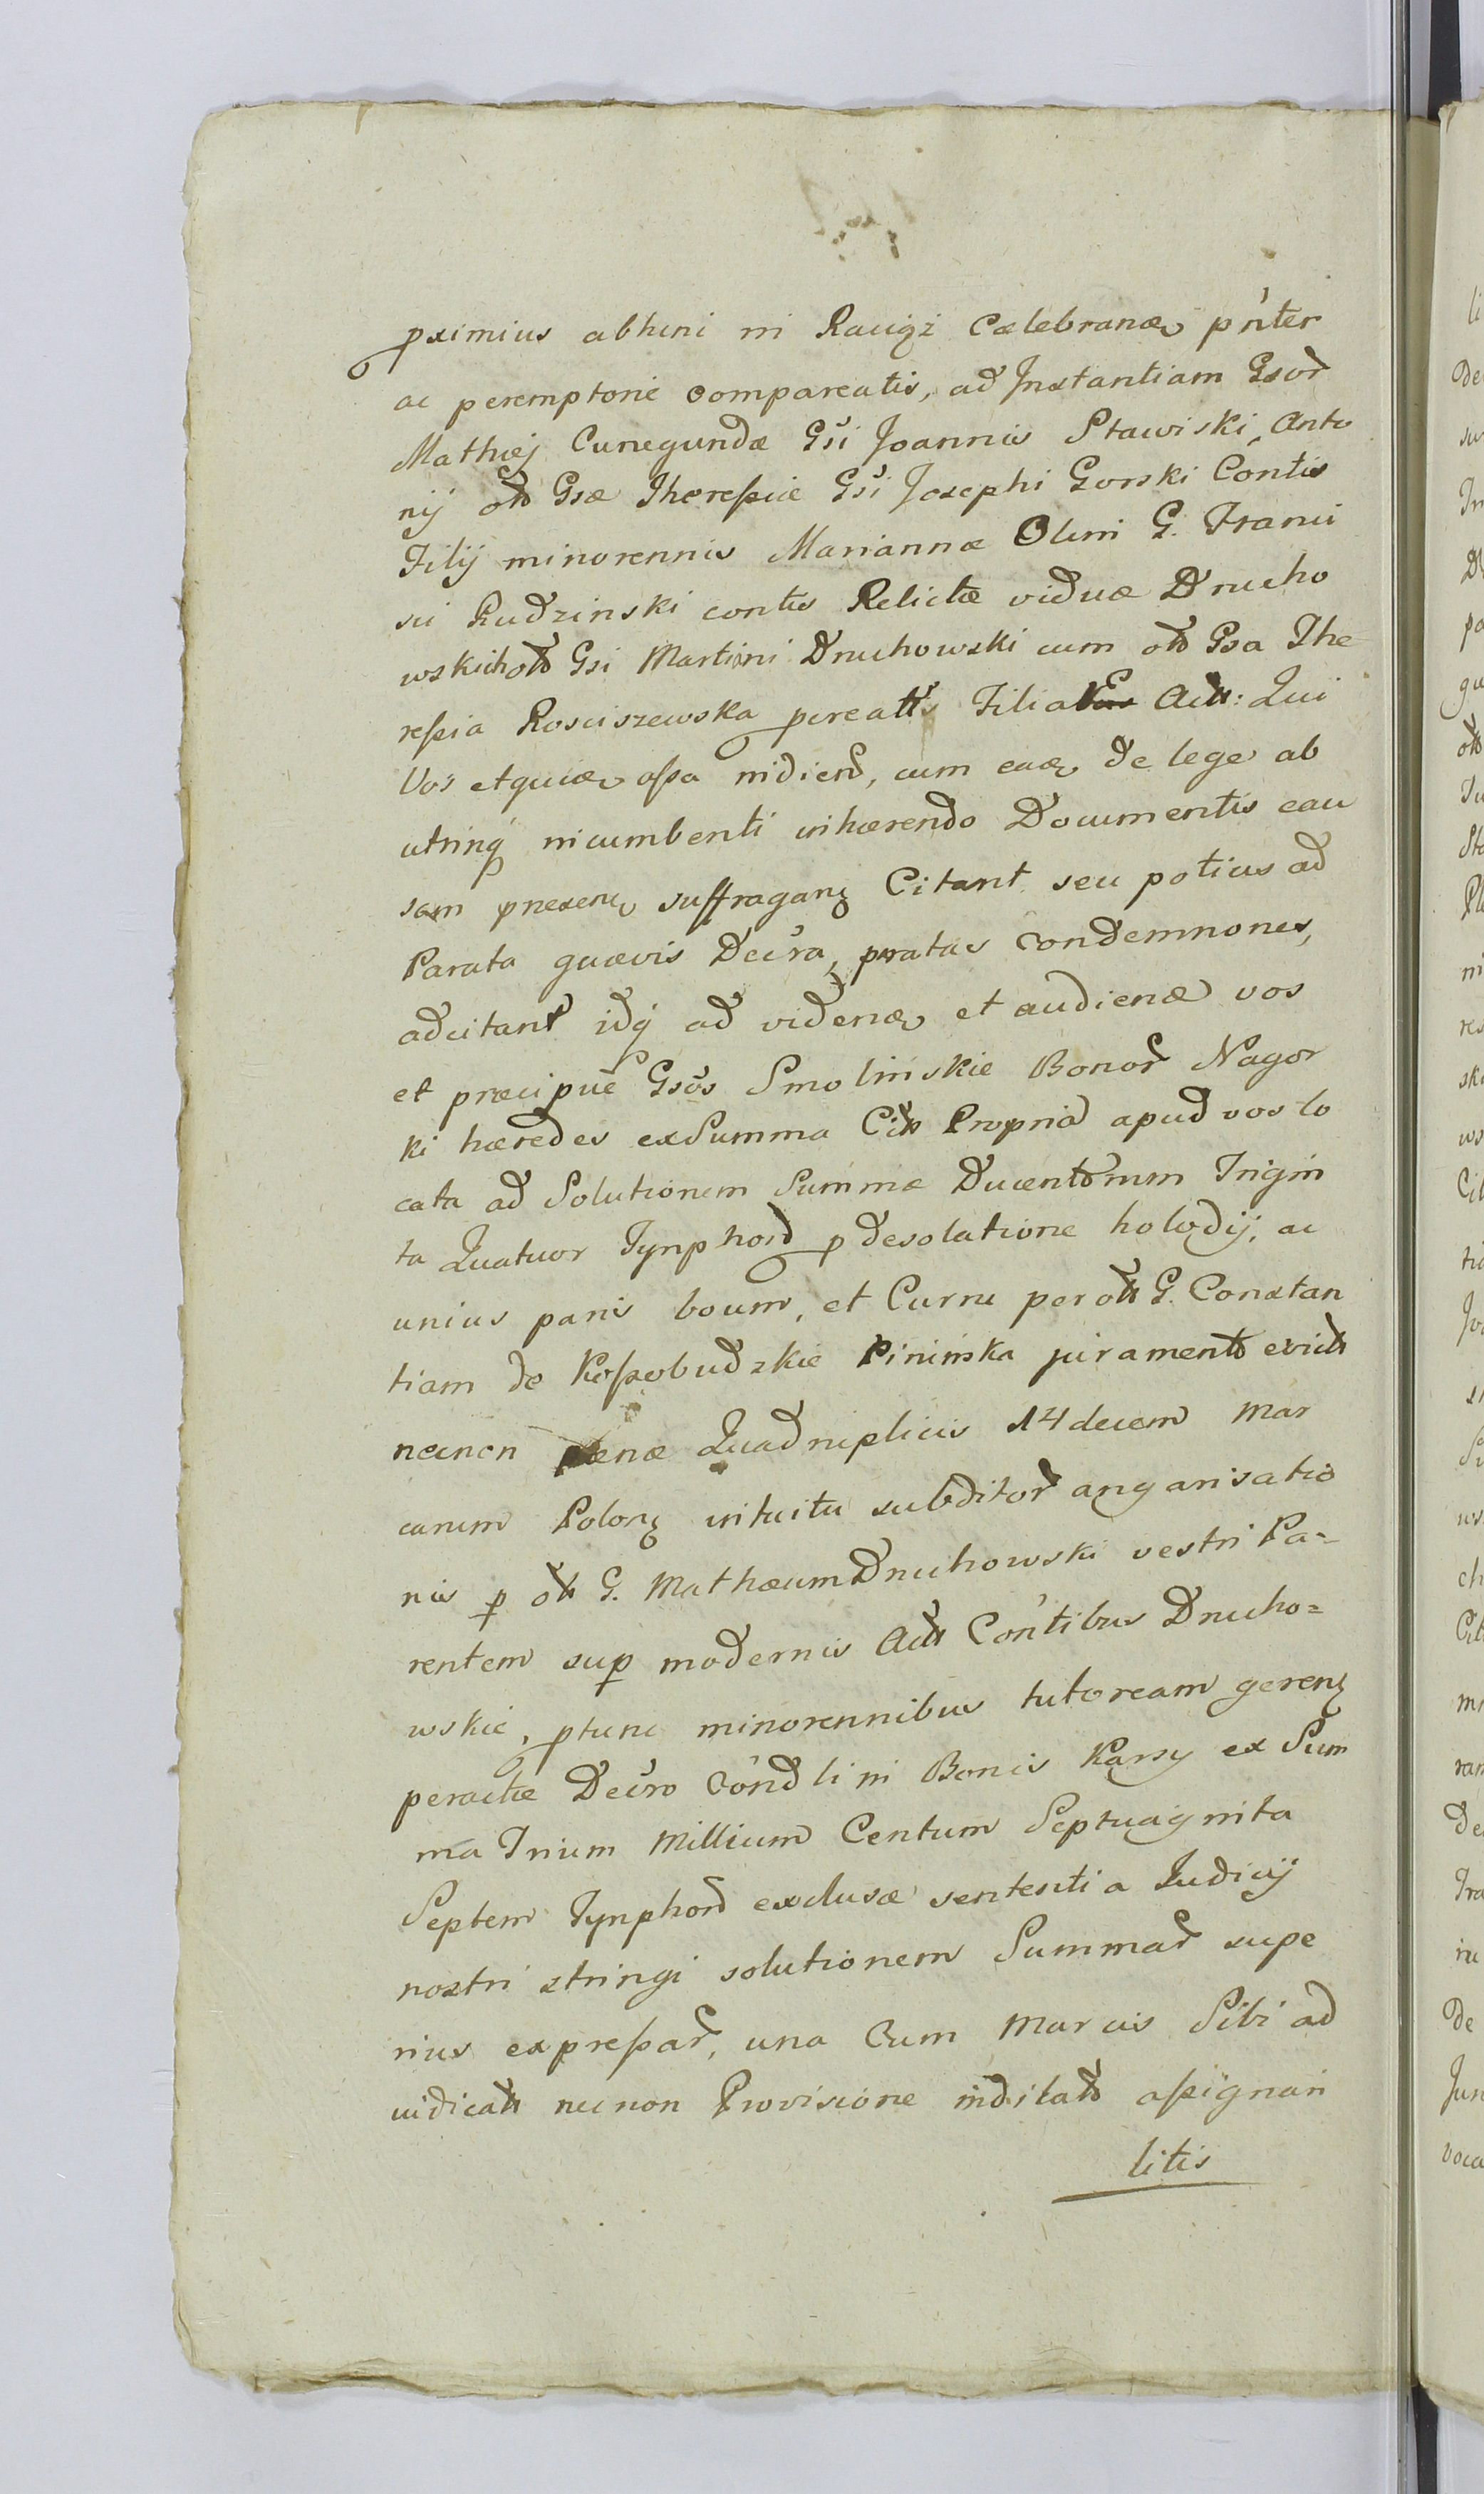 pximius abhinc in Raciąż Cælebranæ pnter
ac peremptorie compareatis, ad Instantiam Gsor
Mathiej Cunegundæ Gsi Joannis Stawiski, Anto
nij ott Gsæ Theressiæ Gsi Josephi Gorski Contis
Filij minorennis Mariannæ Olim G. Franci
sci Rudzinski contis Relictæ viduæ Drucho
wskich ott Gsi Martini Druchowski cum ott Gsa The
ressia Rosciszewska pcreatts Filia Actt: Qui
Vos etquia assa indiend, cum eaq de lege ab
utrinq incumbenti inhærendo Documentis cau
sam præsen suffragan Citant seu potius ad
Parata quævis Decra, pratas condemnones,
adcitant idq ad videnæ et audienæ vos
et præcipue Gsos Smolinskie Bonor Nagor
ki hæredes ex Summa Citt Propria apud vos lo
cata ad Solutionem Summæ Ducentorum Trigin
ta Quatuor Tynphor p desolatione holodij, ac
unius paris boum, et Curru per ott G. Constan
tiam de Kossobudzkie Pininska juramento evictt
necnon pænæ Quadruplicis 14 decem Mar
carum Polon intuitu subditor angarisatio
nis p ott G. Mathæum Druchowski vestri Pa=
rentem sup modernis Actt Contibus Drucho=
wskie, ptunc minorennibus tutoream geren
peractæ Decro Condli in Bonis Karsy ex Sum
ma Trium Millium Centum Septuaginta
Septem Tynphor exclusæ sententia Judicij
nostri stringi solutionem Summar supe
rius expressar, una Cum Marcis Sibi ad
iudicatt nec non Provisione inditatt assignari
litis